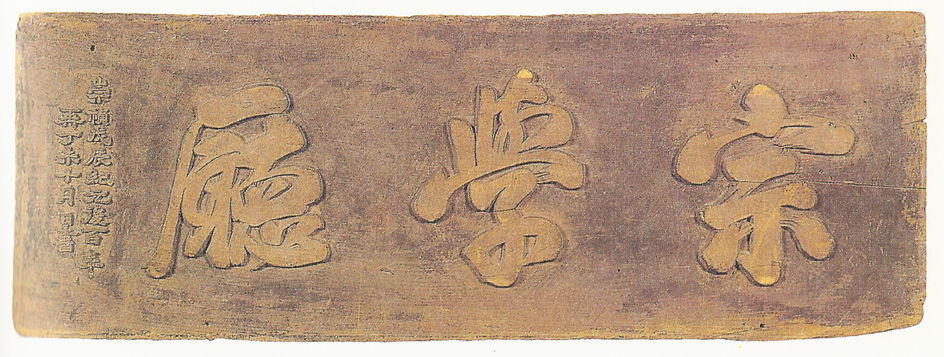 宗學廳
崇禎戊辰紀元後百年
再丁未十月日書